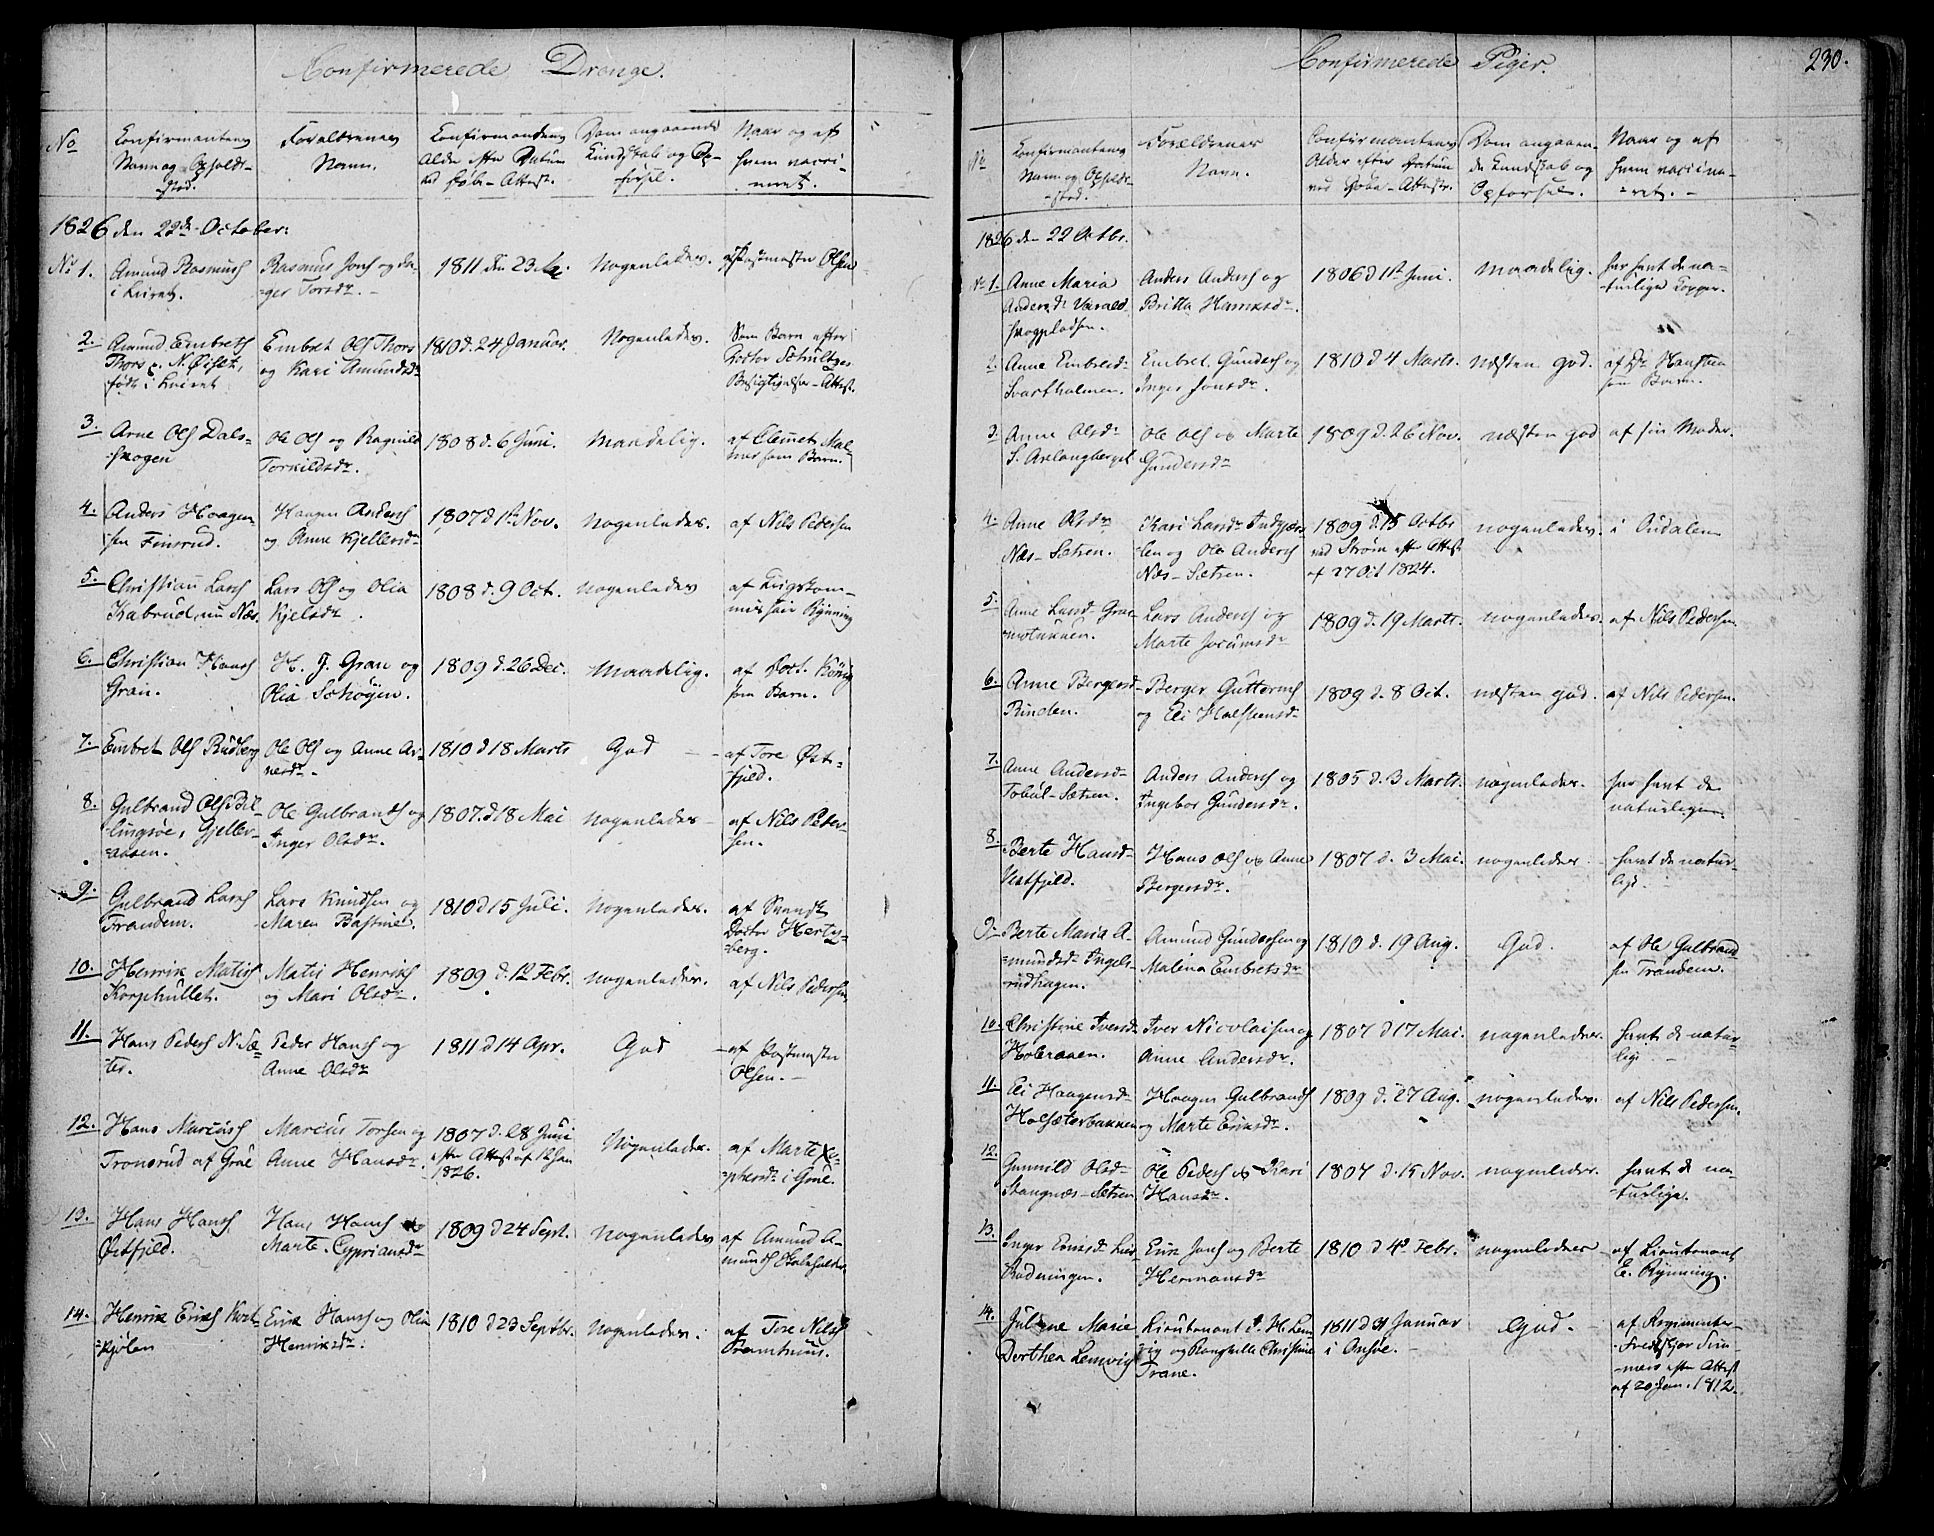 Confirmerede Drenge.
No
Confirmantens
Navn og Opholds-
sted.
Forældrenes
Navn.
Confirmandens
Alder efter Datum
ved Døbe-Attest.
Dom angaaende
Kundskab og Op-
førsel.
Naar og af
hvem vacci-
neret.
1826 den 22de October:
No 1.
Amund Rasmus
Rasmus Jons og
-ger Torsdr. -
1811 den 23
Nogenledes.
Postmester Olsen
2.
Amund Embreths
Thors N. Øiset,
født i
Embret Ols Thors
og Kari Amundsdr
1810 d. 24 Januar.
Nogenledes.
Som Barn efter
Doctor Schültzes
Besigtigelses-Attest.
3.
Arne Ols Dals-
skogen
Ole Ols og Ragnild
Torkildsdr.
1808 d. 6 Juni.
Maadelig.
af Clemet Mal-
som Barn.
4.
Anders Haagen-
sen Finsrud.
Haagen Anders
og Anne Kjellersdr
1807 d 1st Nov.
Nogenledes.
af Nils Pedersen
5.
Christian Lars
Kabrud, nu Næs.
Lars Ols og Olia
Kjelsdr.
1808 d. 9 Oct.
Nogenledes
af Krigskom-
missair Rynning
6.
Christian Hans
Gran.
H. J. Gran og
Olia Schøyen.
1809 d. 26 Dec.
Maadelig.
af Doct. König
som Barn.
7.
Embret Ols Rudberg
Ole Ols og Anne Ar-
nesdr.
1810 d 18 Marts
God
af Tore Øst-
fjeld.
8.
Gulbrand Ols Bil-
lingsøe, Gjeller-
aasen.
Ole Gulbrands og
Inger Olsdr.
1807. d 18 Mai
Nogenledes
af Nils Peder-
sen.
9.
Gulbrand Lars
Trandem.
Lars Knudsen og
Maren Bastine.
1810 d 15 Juli.
Nogenledes.
af
Doctor Hertz-
berg.
10.
Henrik Matis
Korphullet.
Matis Henrich
og Mari Olsdr.
1809 d. 12 Febr.
Nogenledes.
af Nils Pedersen
11.
Hans Peders N. Sæ-
ter.
Peder Hans og
Anne Olsdr
1811 d 14 Apr.
God
af Postmester
Olsen. -
12.
Hans Marcus
Tronsrud af Grue
Marcus Torsen og
Anne Hansdr.
1807 d. 28 Juni
efter Attest af 12 Jan
1826.
Nogenledes.
af Marte
phersdr i Grue.
13.
Hans Hans
Østfjeld.
Hans Hans og
Marte Cypriansdr
1809 d 24 Sept.
Nogenledes
af Amund A-
munds
14.
Henrik Eriks Kort-
kjølen
Erik Hans og Olia
Henriksdr.
1810 d 23 Septbr.
Nogenledes.
af Tore Nils
Confirmerede Piger.
230.
No
Confirmantens
Navn og Opholds-
-sted.
Forældrenes
Navn.
Confirmantens
Alder efter Datum
ved Døbe-Attestr.
Dom angaaen-
de Kundskab og
Opførsel.
Naar og af
hvem vaccine-
-ret. -
1826 den 22 Octbr.
No 1.
Anne Maria
Andersdr Varald-
skogpladsen.
Anders Anders og
Britta Hansdr.
1806 d 1st Juni.
Maadelig.
har havt de na-
turlige Kopper.
2.
Anne Embretsdr
Svartholmen.
Embret Gunders og
Inger Jonsdr.
1810 d 4 Marts.
næsten god.
af Dr Hansteen
som Barn.
3.
Anne Olsdr
S. Arelangberget
Ole Ols og Marte
Gundersdr
1809 d. 26 Nov.
næsten god
af sin Moder.
4.
Anne Olsdr
Næs-Sætren.
Kari Larsdr
og Ole Anders
Næs-Sætren.
1809 d. 15 Octbr
ved Strøm efter Attest
af 27 Oct 1824.
nogenledes.
i Oudalen
5.
Anne Larsdr
Lars Anders og
Marte Jocumsdr
1809 d. 19 Marts.
nogenledes.
af Nils Pedersen
6.
Anne Bergersdr
Rinden.
Berger Guttorms
og Eli Halstensdr
1809 d. 8 Oct.
næsten god.
af Nils Pedersen
7.
Anne Andersdr
Tobøl-Sætren.
Anders Anders og
Ingebor Gundersdr.
1805 d. 3 Marts.
nogenledes.
har havt de
naturlige.
8.
Berte Hansdr
Vestfjeld.
Hans Ols og Anne
Bergersdr.
1807 d. 3 Mai.
nogenledes
havt de natur-
lige.
9
Berte Maria A-
mundsdr Ingels-
rudhagen.
Amund Gundersen og
Malena Embretsdr
1810 d. 19 Aug.
God.
af Ole Gulbrand-
sen Trandem.
10.
Christine Iversdr
Holeraaen.
Iver Nicolaisen og
Anne Andersdr.
1807 d 17 Mai.
nogenledes.
havt de natur-
lige. -
11.
Eli Haagensdr
Holsæterbakken
Haagen Gulbrands
og Marte Eriksdr.
1809 d. 27 Aug.
nogenledes.
af Nils Pedersen.
12.
Gunnild Olsdr
Stangnæs-Sætren
Ole Peders og Kari
Hansdr.
1807 d. 15 Nov.
nogenledes.
havt de na-
turlige.
13.
Inger Eriksdr
Roderingen.
Erik Jons og Berte
Hermansdr
1810 d 4de Febr.
nogenledes
af Lieutenant
E. Rynning.
14.
Juliane Marie
Dorthea Lemvig
Lieutenant P. H. Lem-
vig og Ranghille Christine
Trane.
1811 d 31 Januar
i
God.
af Regiments-
mers efter Attest
af 20 Jan. 1812.